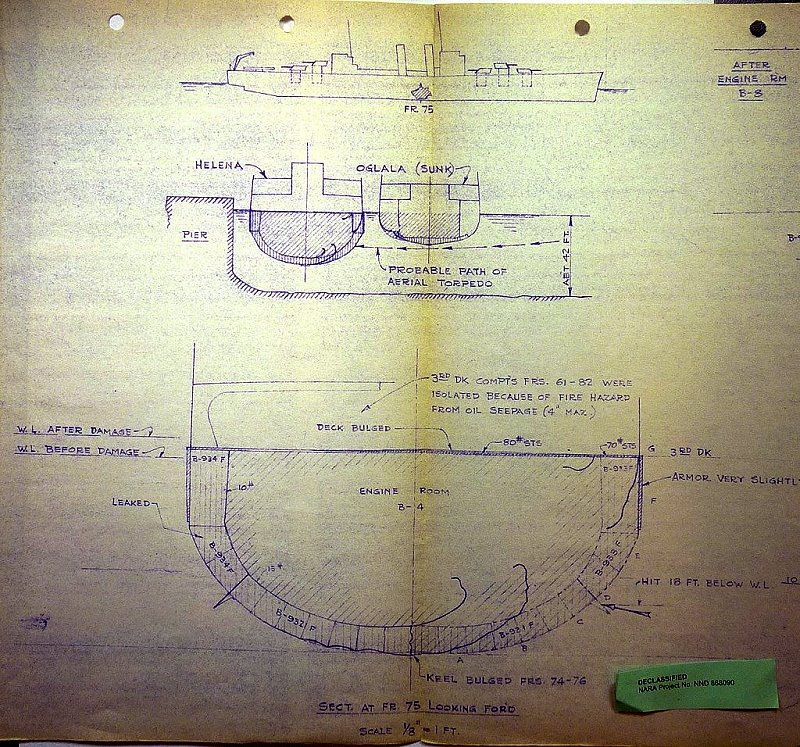 FR. 75
AFTER
ENGINE RM
B-8
HELENA
OGLALA (SUNK)
PIER
ABT. 42 FT.
PROBABLE PATH OF
AERIAL TORPEDO
3RD DK COMPTS FRS. 61-82 WERE
ISOLATED BECAUSE OF FIRE HAZARD
FROM OIL SEEPAGE (4" MAX.)
W.L. AFTER DAMAGE
DECK BULGED
80# STS
70# STS
G
3RD DK
W.L. BEFORE DAMAGE
B-934 F
B-933F
10#
ENGINE ROOM
B-4
ARMOR VERY SLIGHTL
F
LEAKED
B-934F
15#
B-933F
E
HIT 18 FT. BELOW W.L.
10
D
B-932 F
B-931 F
C
B
A
KEEL BULGED FRS. 74-76
SECT. AT FR 75 LOOKING FOR'D
SCALE 1/8" = 1 FT.
DECLASSIFIED
NARA Project No. NND 868090